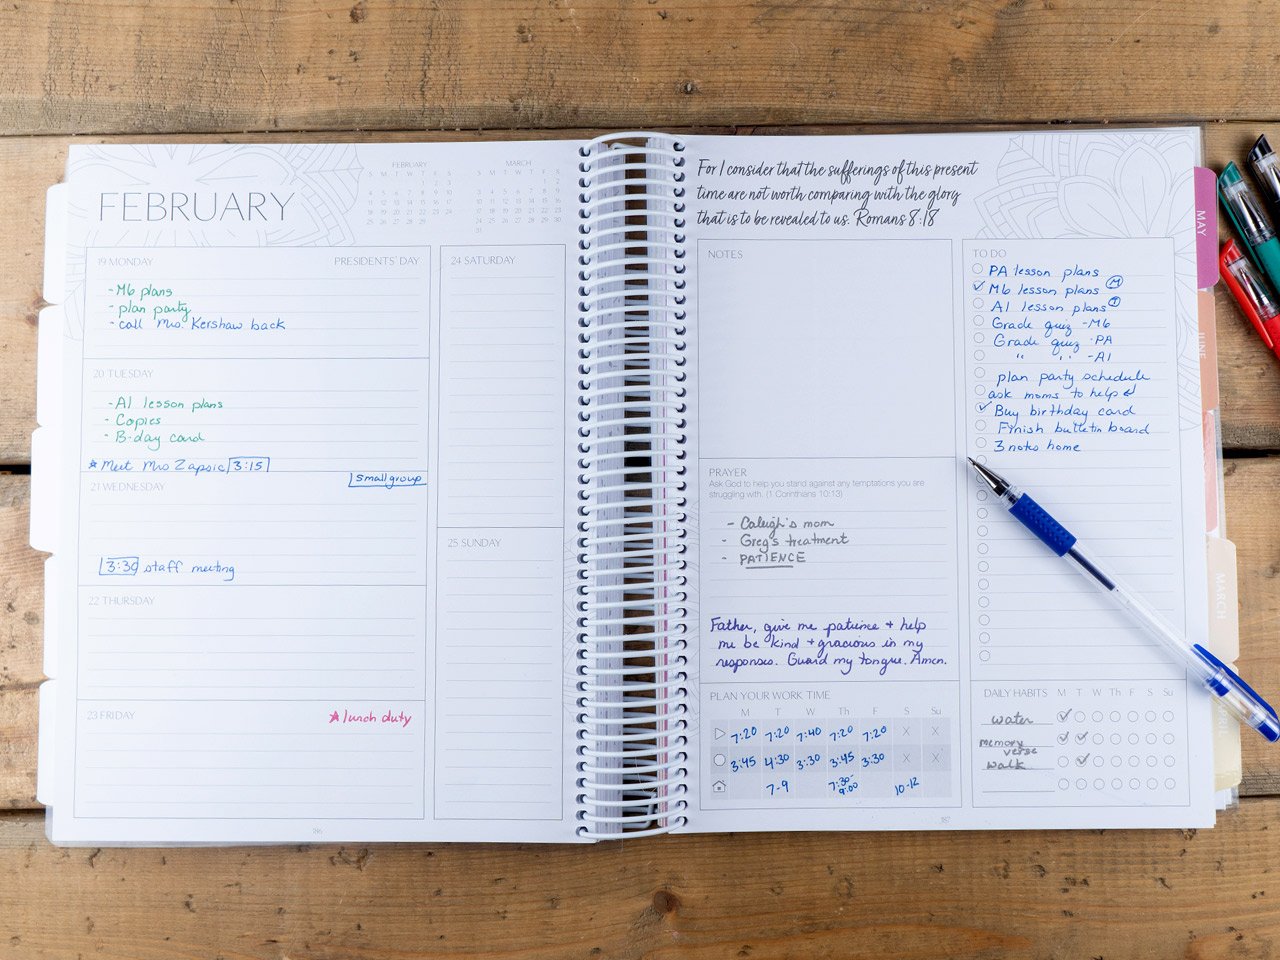 FEBRUARY
FEBRUARY
S M T W T F S
MARCH
S M T W T F S
19 MONDAY
PRESIDENTS' DAY
- M6 plans
- plan party
- call Mrs. Kershaw back
20 TUESDAY
- A1 lesson plans
- Copies
- B-day card
★ Meet Mrs Zapsic 3:15
21 WEDNESDAY
Small group
3:30 staff meeting
22 THURSDAY
23 FRIDAY
★ lunch duty
24 SATURDAY
25 SUNDAY
186
For I consider that the sufferings of this present
time are not worth comparing with the glory
that is to be revealed to us. Romans 8:18
NOTES
PRAYER
Ask God to help you stand against any temptations you are
struggling with. (1 Corinthians 10:13)
- Caleigh's mom
- Greg's treatment
- PATIENCE
Father, give me patience + help
me be kind + gracious in my
responses. Guard my tongue. Amen.
PLAN YOUR WORK TIME
M T W Th F S Su
7:20 7:20 7:40 7:20 7:20 X X
3:45 4:30 3:30 3:45 3:30 X X
7-9 7:30-9:00 10-12
TO DO
PA lesson plans
✓ M6 lesson plans M
A1 lesson plans T
Grade quiz - M6
Grade quiz - PA
" " - A1
plan party schedule
ask moms to help
✓ Buy birthday card
Finish bulletin board
3 notes home
DAILY HABITS M T W Th F S Su
water
memory verse
walk
187
MAY
JUNE
MARCH
APRIL